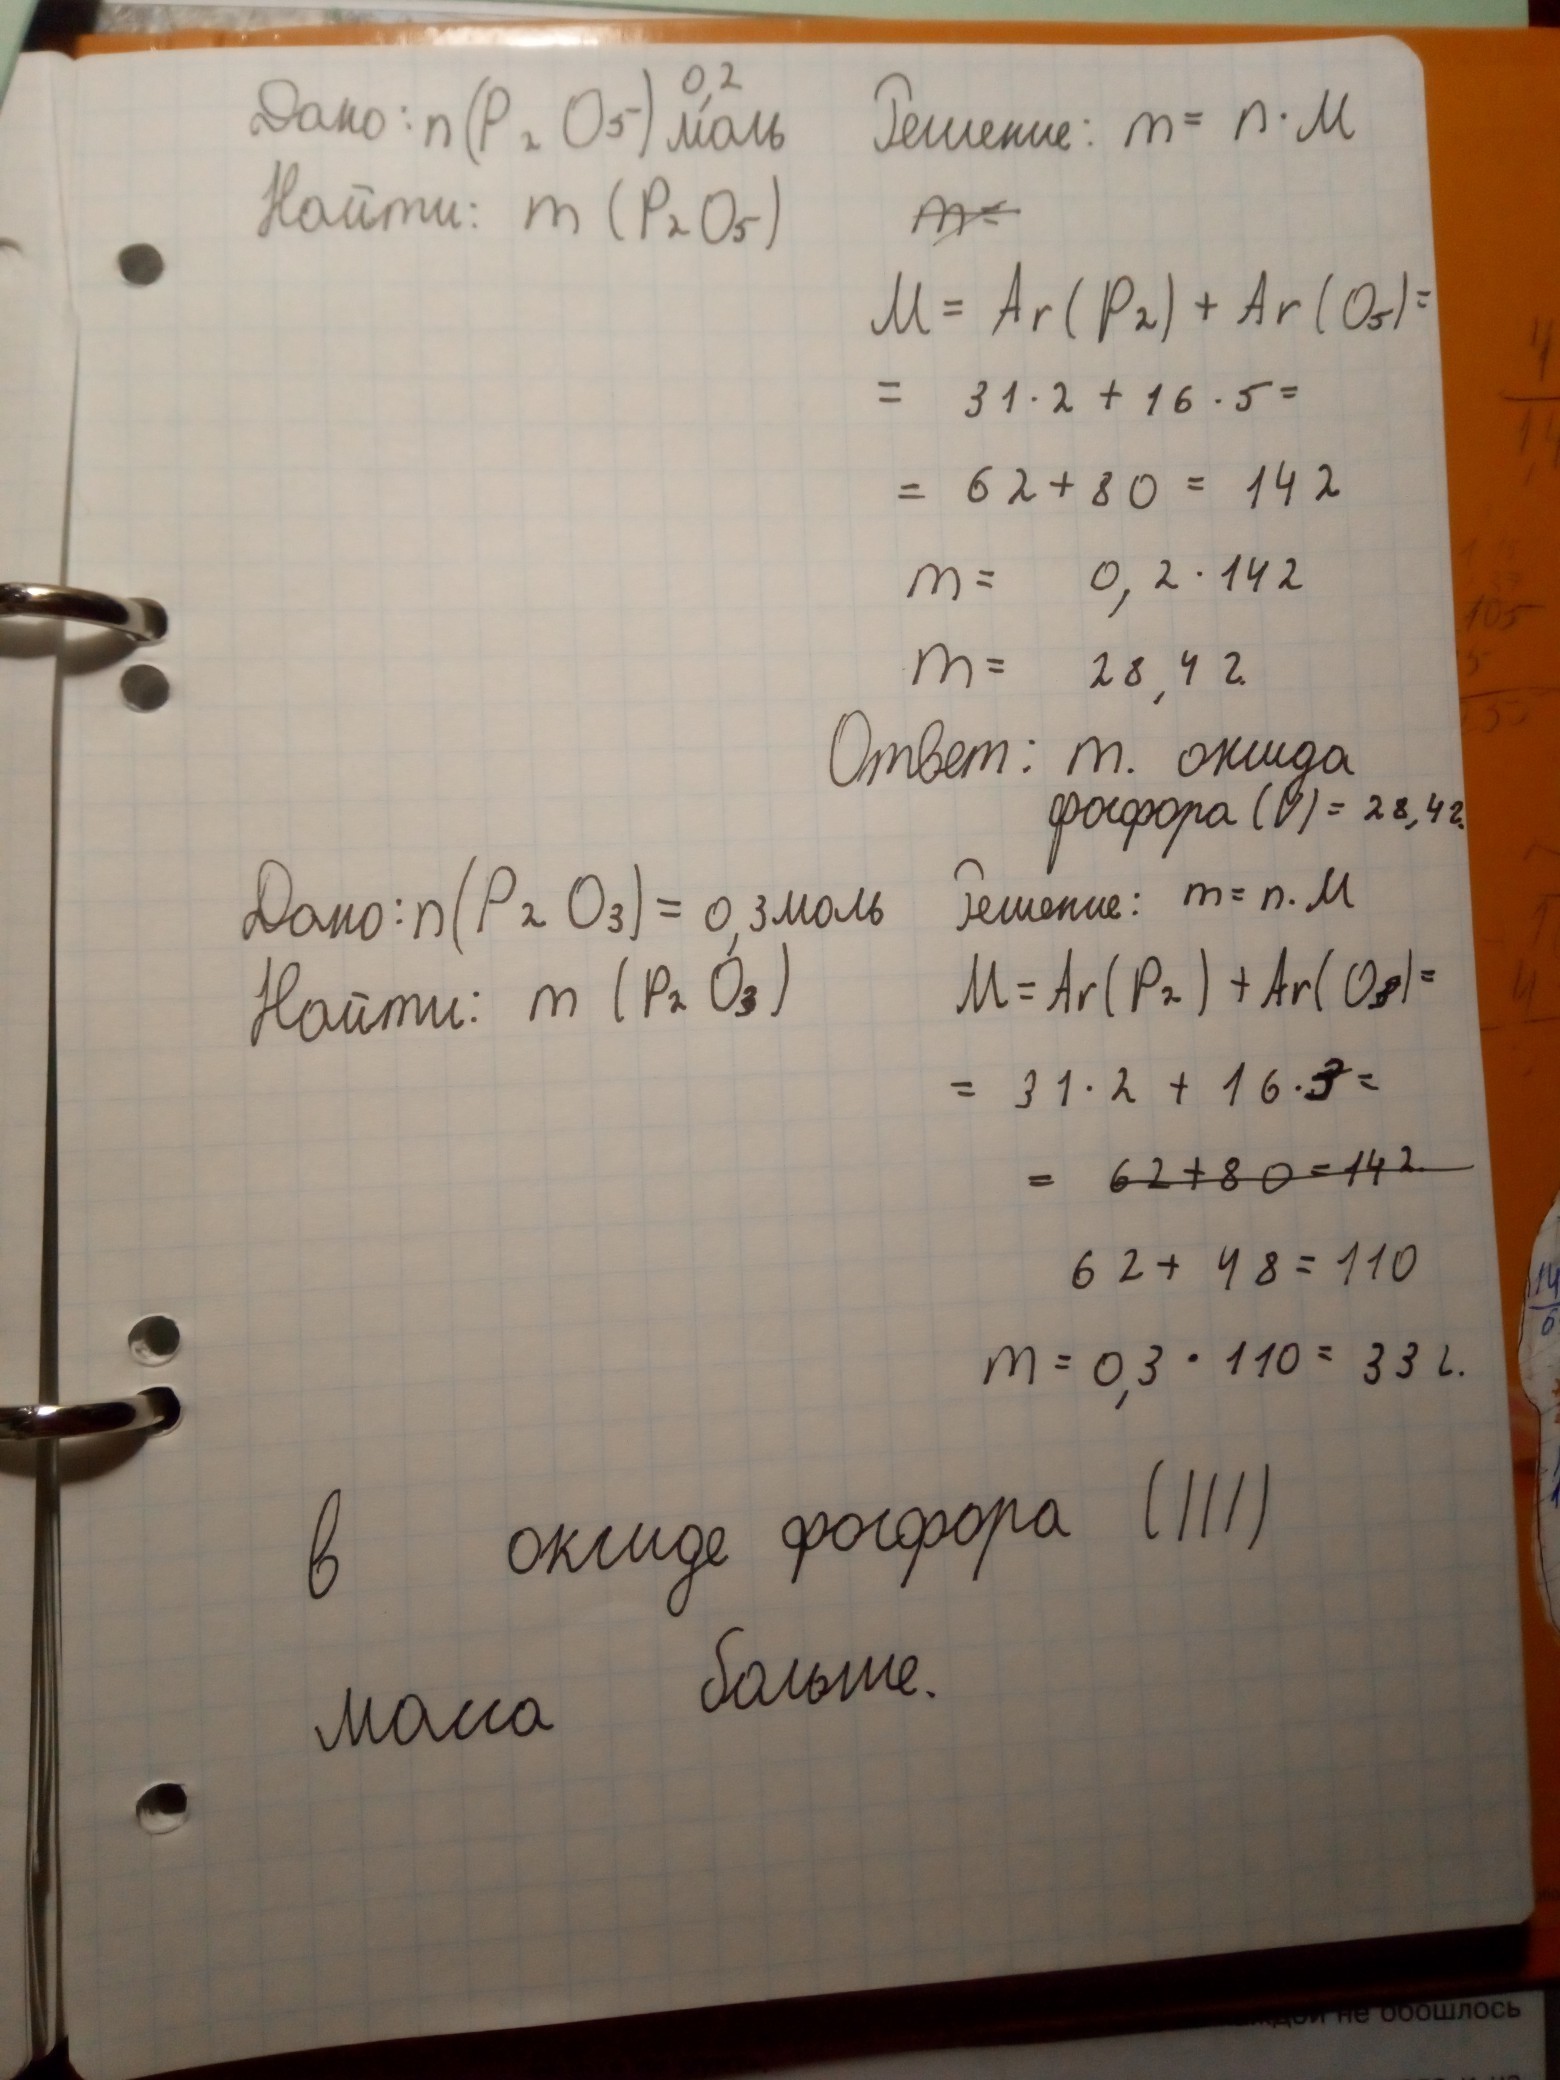 Дано: n(P₂O₅) 0,2 моль
Найти: m (P₂O₅)
Решение: m = n · M
m=
M = Ar(P₂) + Ar(O₅)=
= 31·2 + 16·5=
= 62+80 = 142
m= 0,2·142
m= 28,4 г.
Ответ: m. оксида
фосфора (V)= 28,4г.
Дано: n(P₂O₃)= 0,3моль
Найти: m (P₂O₃)
Решение: m=n.M
M=Ar(P₂)+Ar(O₃)=
= 31·2 + 16·3=
= 62+80=142
62+48=110
m=0,3·110=33 г.
в оксиде фосфора (III)
масса больше.
не обошлось
4
105
14
6
4